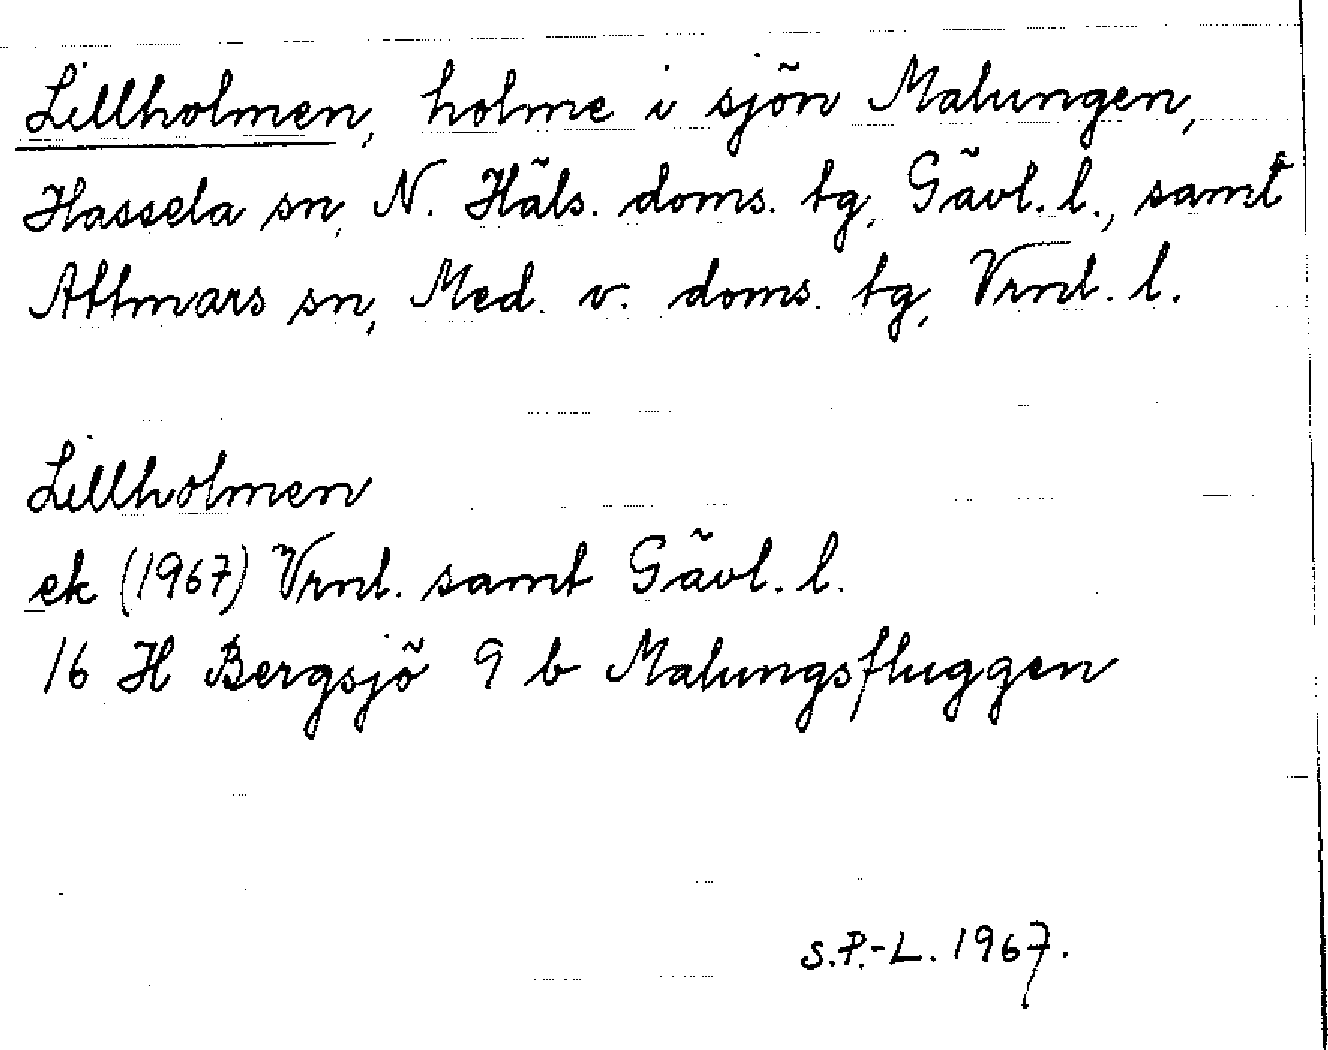 Lillholmen, holme i sjön Malungen,
Hassela sn, N. Häls. doms. tg, Gävl. l., samt
Attmars sn, Med. v. doms. tg, Vrnl. l.
Lillholmen
ek (1967) Vrnl. samt Gävl. l.
16 H Bergsjö 9 b Malungsfluggen
S.P.-L. 1967.